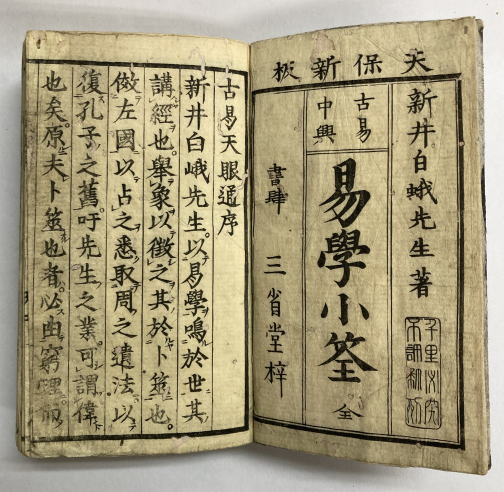 天保新板
新井白蛾先生著
古易
中興
易學小筌
全
書肆
三省堂梓
千里必究
不許翻刻
古易天眼通序
新井白峨先生。以易學鳴於世。其
講經也。舉象以徵之。其於卜筮也。
倣左國以占之。悉取周之遺法。以
復孔子之舊。吁先生之業。可謂偉
也矣。原夫卜筮也者。必由窮理而